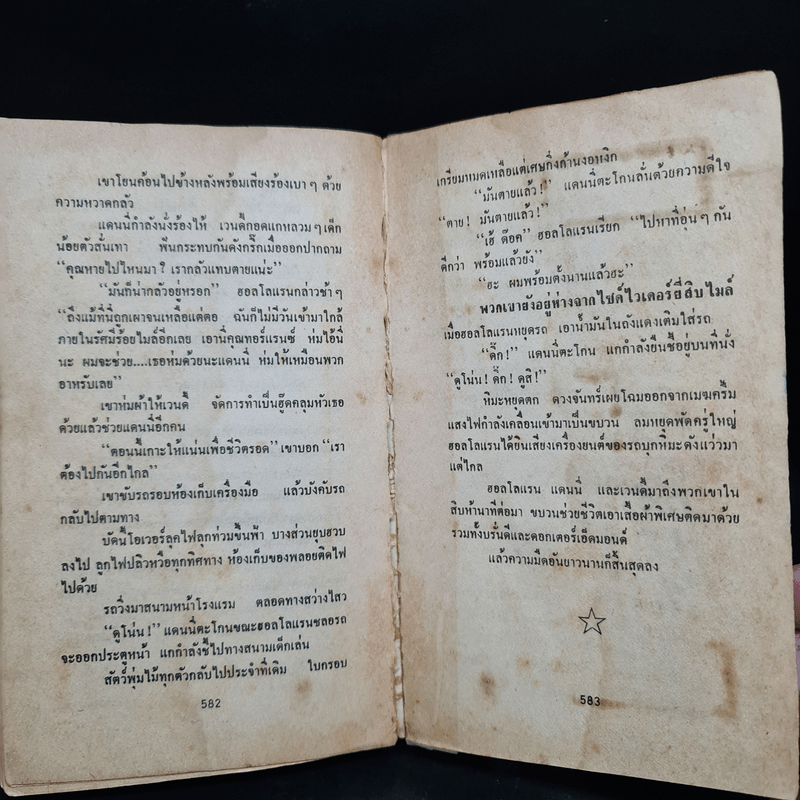 เขาโยนค้อนไปข้างหลังพร้อมเสียงร้องเบา ๆ ด้วย
ความหวาดกลัว
แดนนี่กำลังนั่งร้องไห้ เวนดี้กอดแกหลวม ๆ เด็ก
น้อยตัวสั่นเทา ฟันกระทบกันดังกริ๊กเมื่อออกปากถาม
“คุณหายไปไหนมา? เรากลัวแทบตายแน่ะ”
“มันก็น่ากลัวอยู่หรอก” ฮอลโลแรนกล่าวช้า ๆ
“ถึงแม้ที่นี่ถูกเผาจนเหลือแต่ตอ ฉันก็ไม่มีวันเข้ามาใกล้
ภายในรัศมีร้อยไมล์อีกเลย เอานี่คุณทอร์แรนซ์ ห่มไอ้นี่
นะ ผมจะช่วย....เธอห่มด้วยนะแดนนี่ ห่มให้เหมือนพวก
อาหรับเลย”
เขาห่มผ้าให้เวนดี้ จัดการทำเป็นฮู้ดคลุมหัวเธอ
ด้วยแล้วช่วยแดนนี่อีกคน
“ตอนนี้เกาะให้แน่นเพื่อชีวิตรอด” เขาบอก “เรา
ต้องไปกันอีกไกล”
เขาขับรถรอบห้องเก็บเครื่องมือ แล้วบังคับรถ
กลับไปตามทาง
บัดนี้โอเวอร์ลุคไฟลุกท่วมขึ้นฟ้า บางส่วนยุบฮวบ
ลงไป ลูกไฟปลิวหวือทุกทิศทาง ห้องเก็บของพลอยติดไฟ
ไปด้วย
รถวิ่งมาสนามหน้าโรงแรม ตลอดทางสว่างไสว
“ดูโน่น!” แดนนี่ตะโกนขณะฮอลโลแรนชลอรถ
จะออกประตูหน้า แกกำลังชี้ไปทางสนามเด็กเล่น
สัตว์พุ่มไม้ทุกตัวกลับไปประจำที่เดิม ใบกรอบ
582
เกรียมหมดเหลือแต่เศษกิ่งก้านงอหงิก
“มันตายแล้ว!” แดนนี่ตะโกนลั่นด้วยความดีใจ
“ตาย! มันตายแล้ว!”
“เฮ้ ด๊อค” ฮอลโลแรนเรียก “ไปหาที่อุ่น ๆ กัน
ดีกว่า พร้อมแล้วยัง”
“ฮะ ผมพร้อมตั้งนานแล้วฮะ”
พวกเขายังอยู่ห่างจากไซด์ไวเดอร์ยี่สิบไมล์
เมื่อฮอลโลแรนหยุดรถ เอาน้ำมันในถังแดงเติมใส่รถ
“ดิ๊ก!” แดนนี่ตะโกน แกกำลังยืนชี้อยู่บนที่นั่ง
“ดูโน่น! ดิ๊ก! ดูสิ!”
หิมะหยุดตก ดวงจันทร์เผยโฉมออกจากเมฆครึ้ม
แสงไฟกำลังเคลื่อนเข้ามาเป็นขบวน ลมหยุดพัดครู่ใหญ่
ฮอลโลแรนได้ยินเสียงเครื่องยนต์ของรถบุกหิมะดังแว่วมา
แต่ไกล
ฮอลโลแรน แดนนี่ และเวนดี้มาถึงพวกเขาใน
สิบห้านาทีต่อมา ขบวนช่วยชีวิตเอาเสื้อผ้าพิเศษติดมาด้วย
รวมทั้งบรั่นดีและดอกเตอร์เอ็ดมอนด์
แล้วความมืดอันยาวนานก็สิ้นสุดลง
583